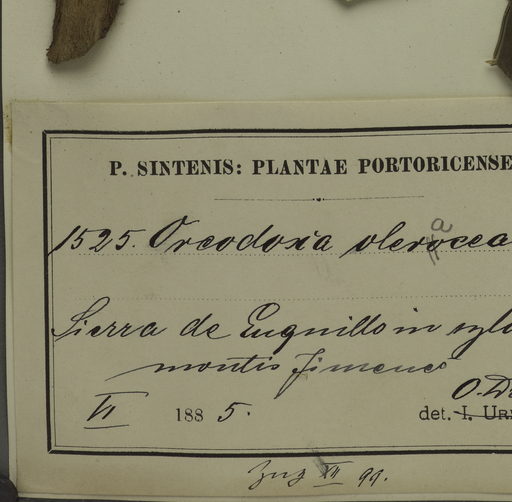 P. SINTENIS: PLANTAE PORTORICENSE
1525. Oreodoxia olerocea
a
Sierra de Luquillo in sylv
montis Jimenes
VI 1885.
O. Dr
det. I. UR
XII 99.